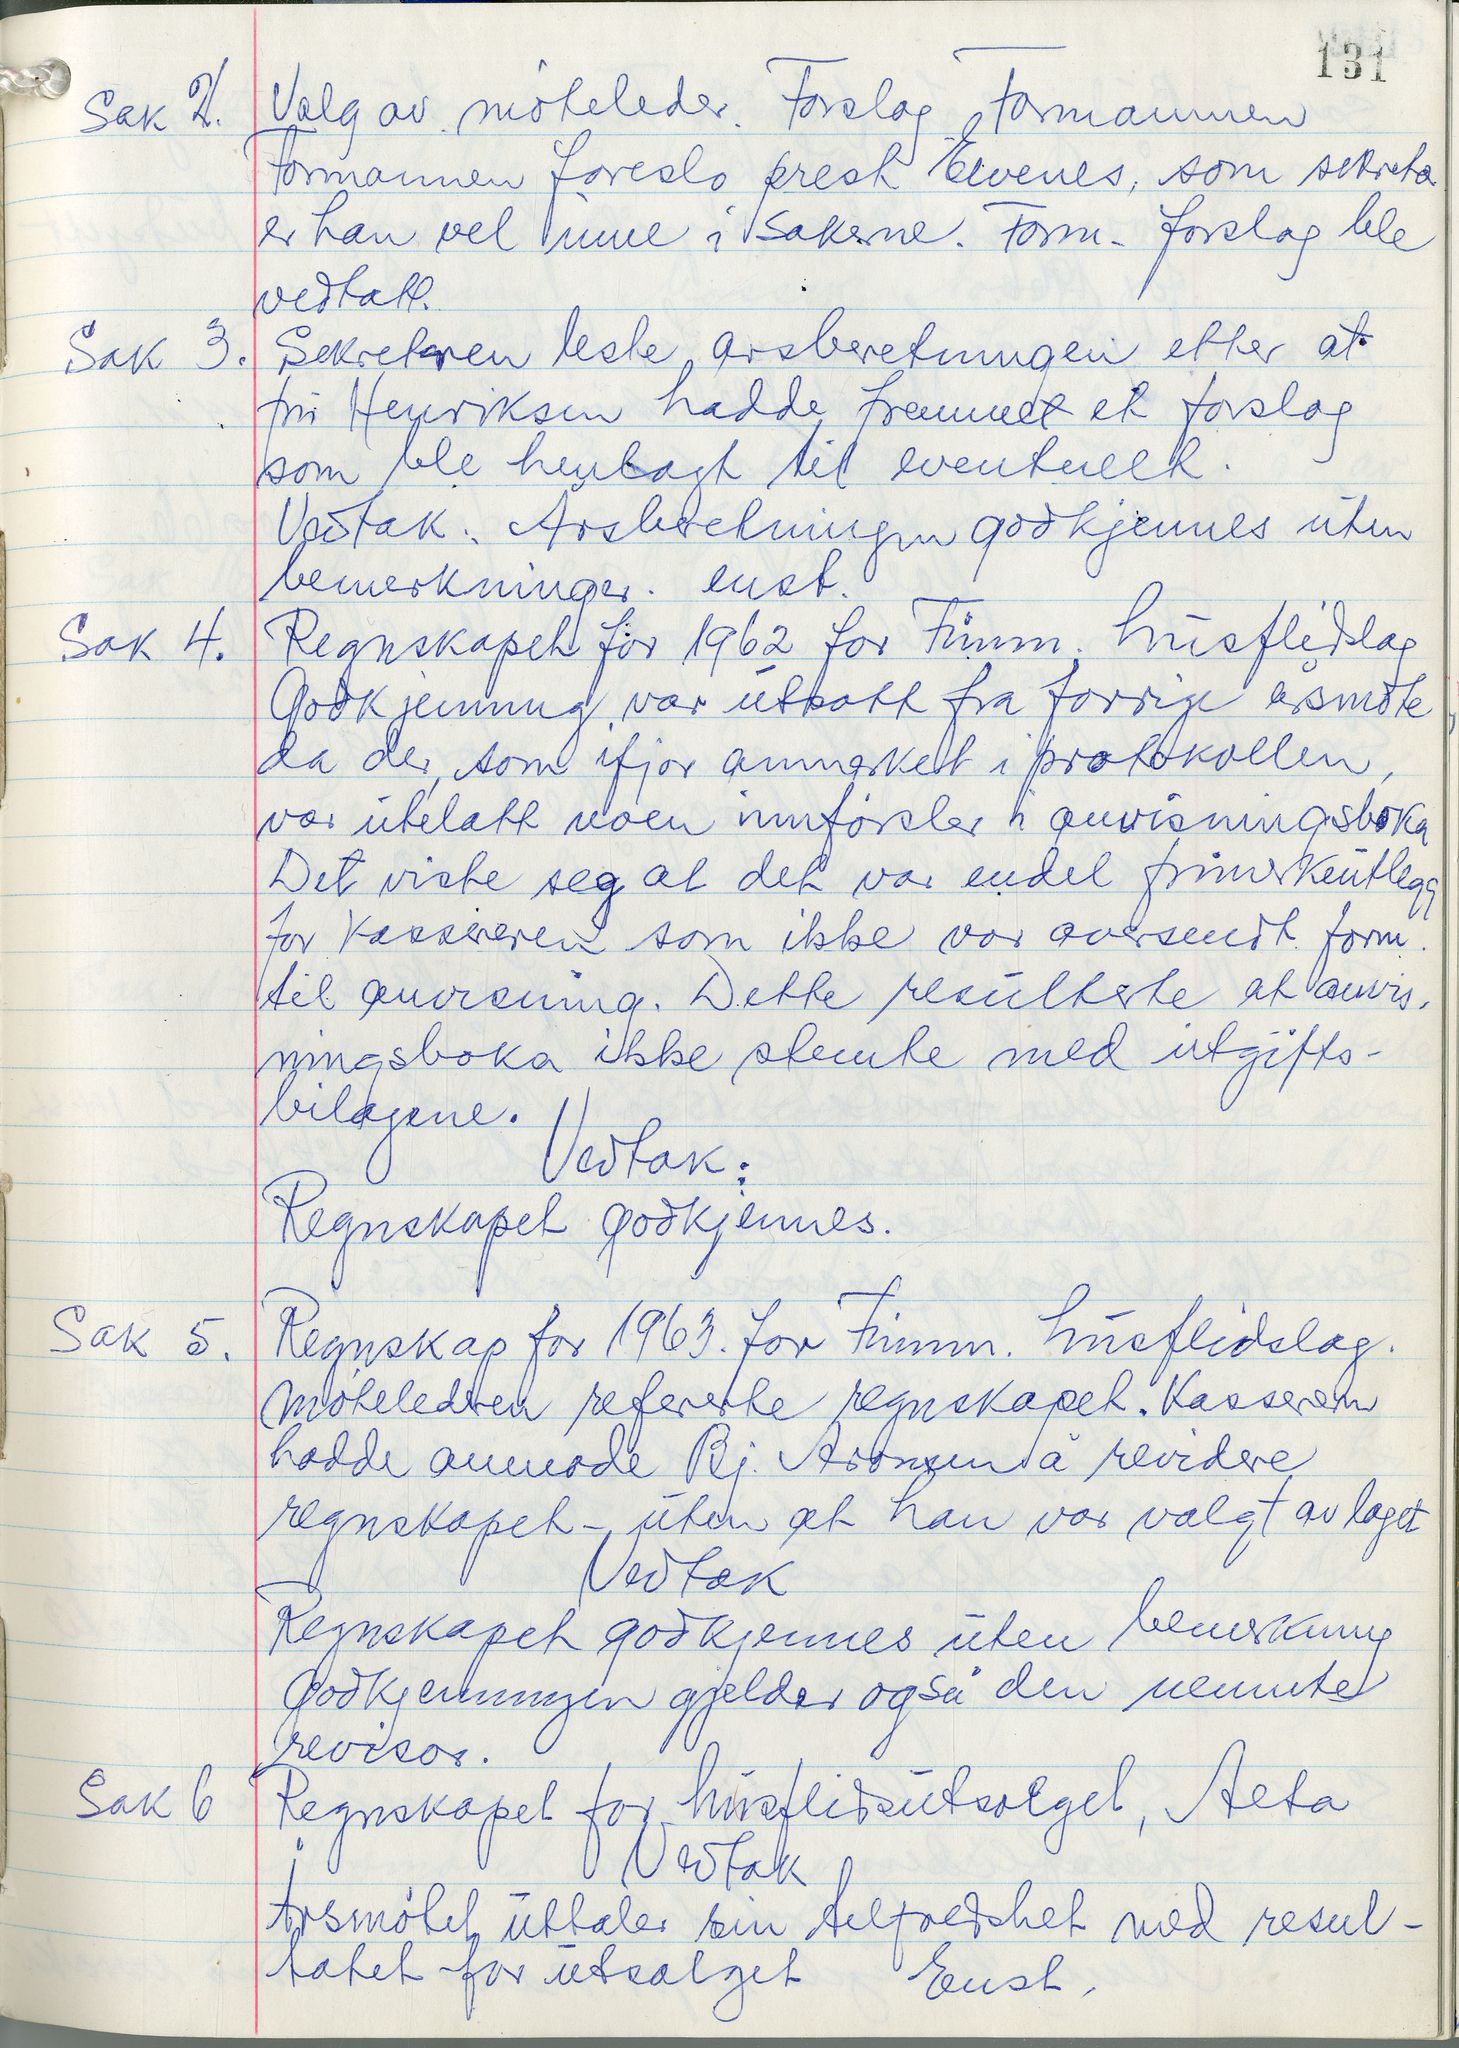 131
Sak 2. Valg av møteleder. Forslag, Formannen
Formannen foreslo prest Elvenes, som sekretær
er han vel inne i sakerne. Form. forslag ble
vedtatt.
Sak 3. Sekretæren leste årsberetningen etter at
fru Henriksen hadde fremmet et forslag
som ble henlagt til eventuelt.
Vedtak. Årsberetningen godkjennes uten
bemerkninger. enst.
Sak 4. Regnskapet for 1962 for Finnm. husflidslag
Godkjenning var utsatt fra forrige årsmøte
da der, som ifjor anmerket i protokollen,
var utelatt noen innførsler i anvisningsboka
Det viste seg at det var endel frimerkeutlegg
for kassereren som ikke var oversendt form.
til anvisning. Dette resulterte at anvis-
ningsboka ikke stemte med utgifts-
bilagene.
Vedtak:
Regnskapet godkjennes.
Sak 5. Regnskap for 1963. for Finnm. husflidslag.
Møtelederen refererte regnskapet. Kassereren
hadde anmode Bj. Aronsen å revidere
regnskapet - uten at han var valgt av laget
Vedtak
Regnskapet godkjennes uten bemerkning
Godkjenningen gjelder også den nemnte
revisor.
Sak 6 Regnskapet for husflidsutsalget, Alta
Vedtak
Årsmøtet uttaler sin tilfredshet med resul-
tatet for utsalget Enst.